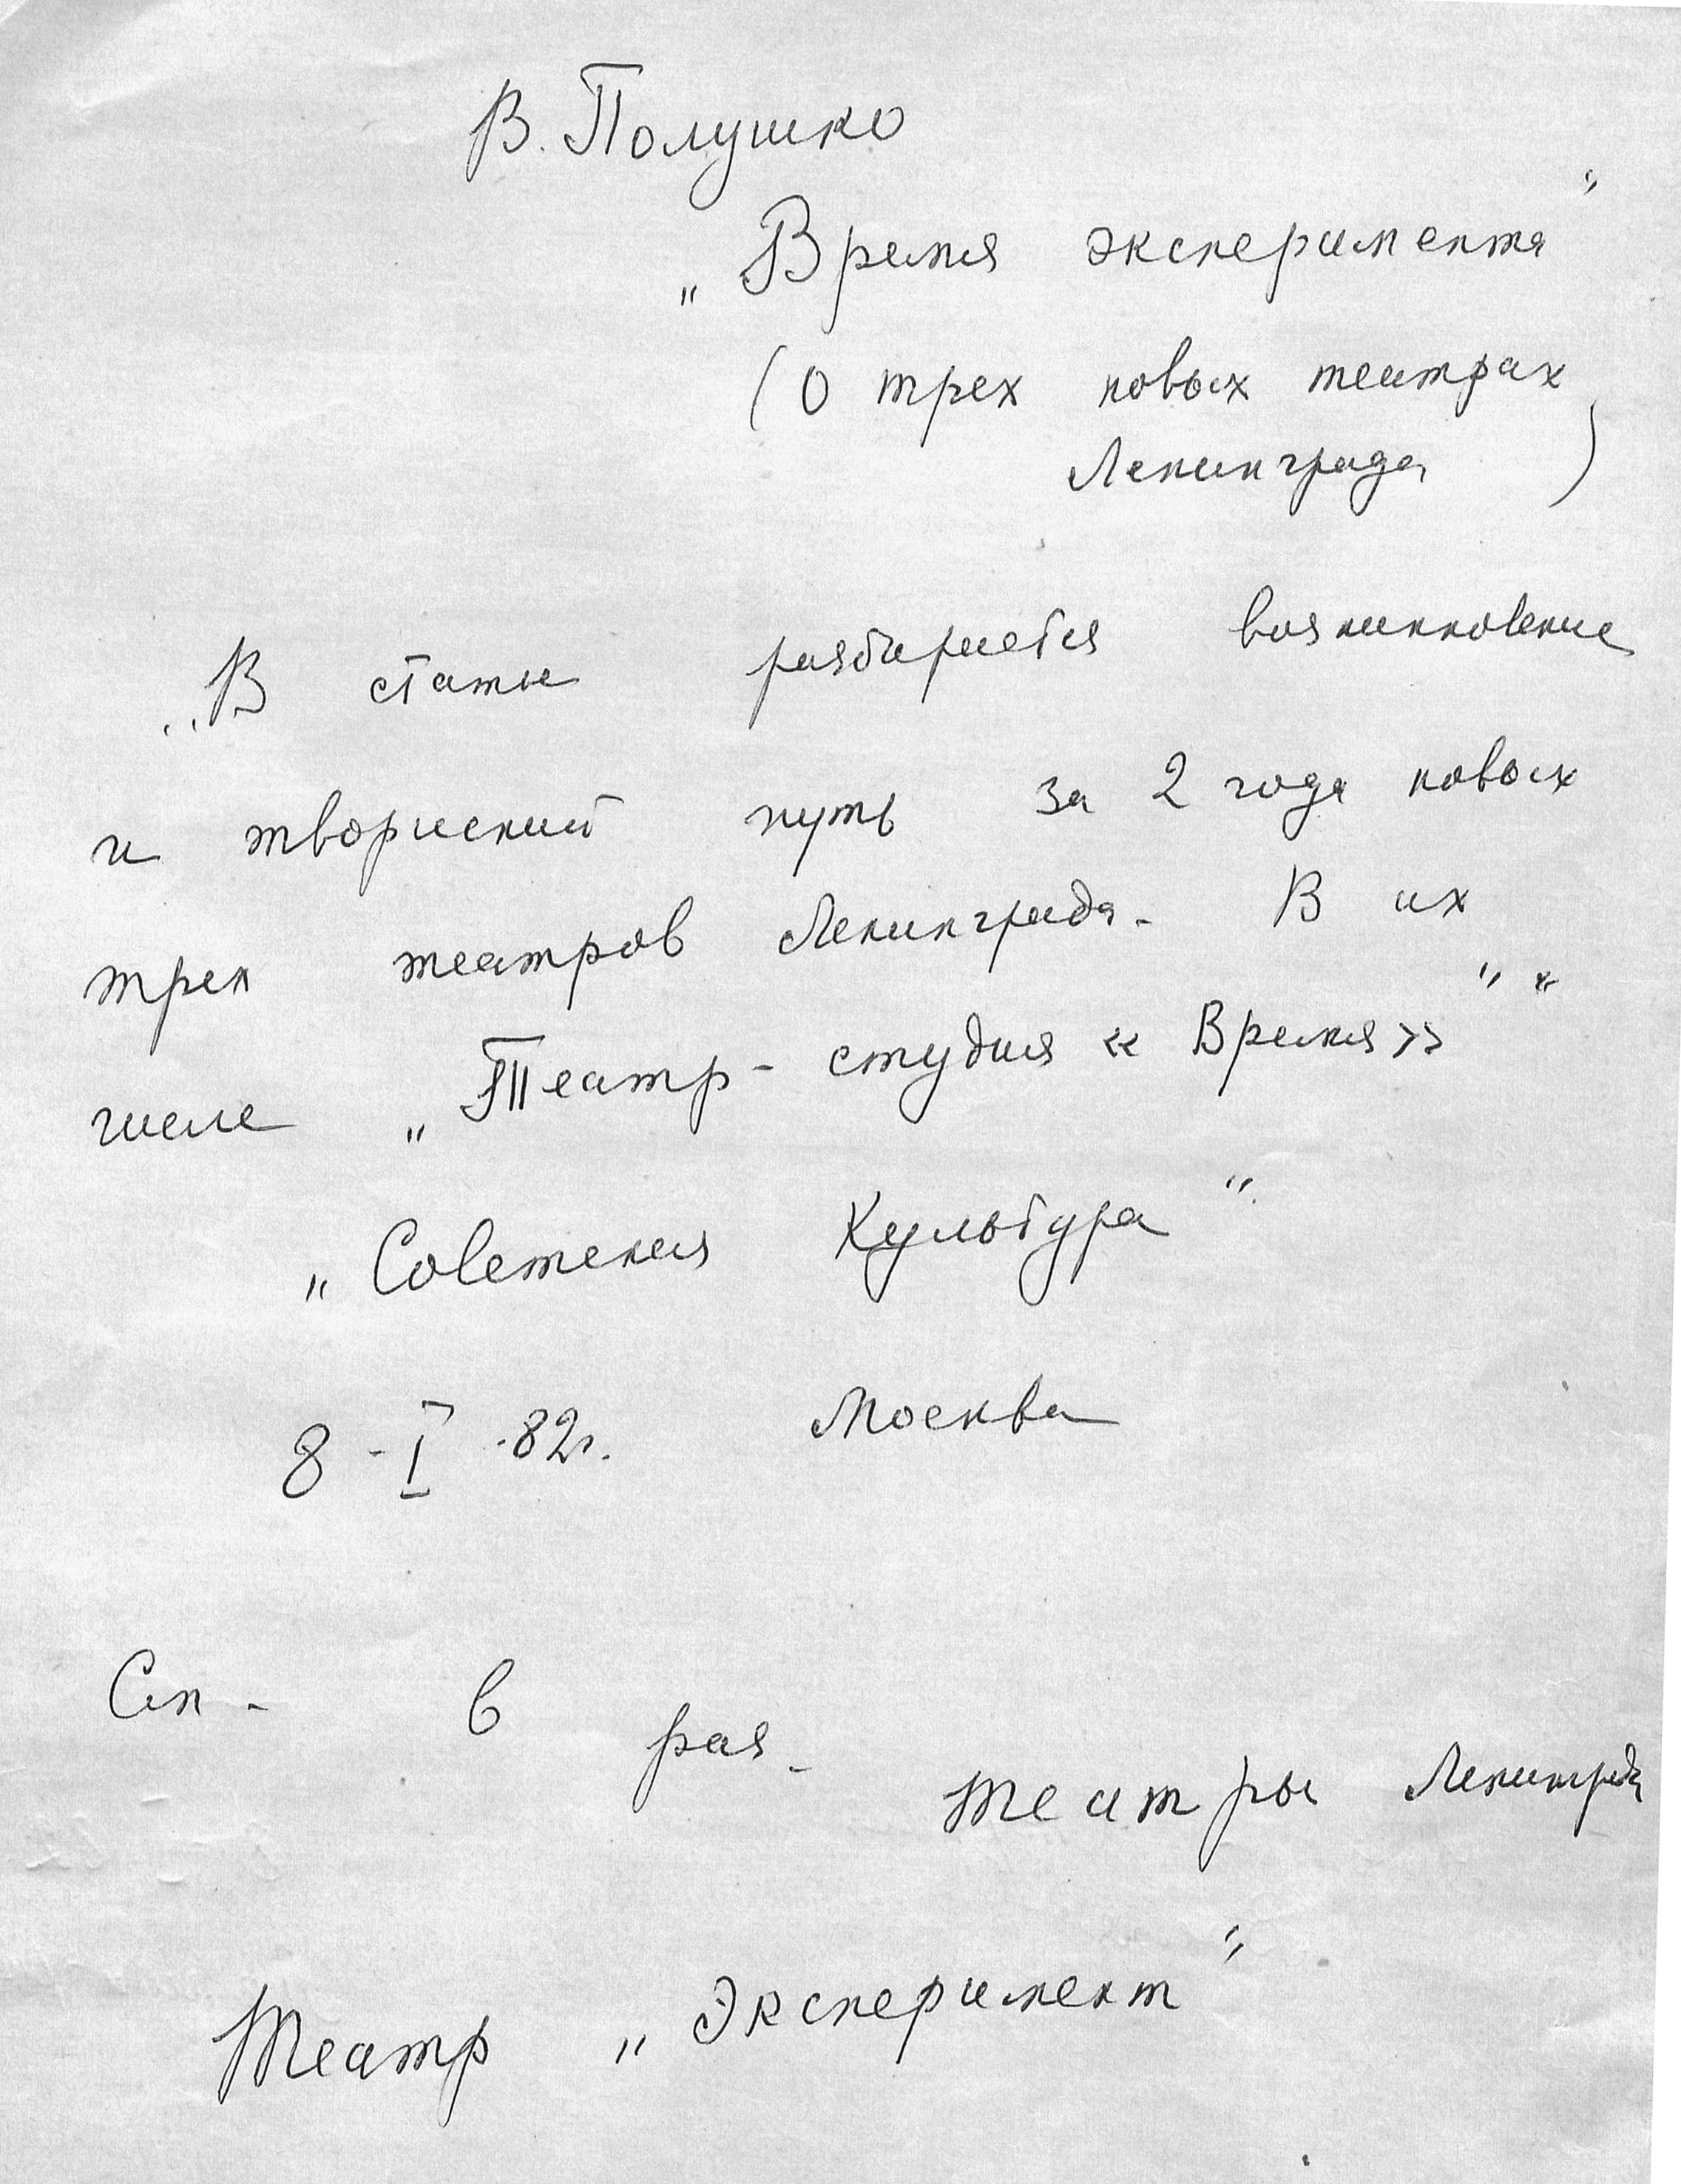 В. Полушко
„Время эксперимента"
(О трех новых театрах
Ленинграда)
„В статье разбирается возникновение
и творческий путь за 2 года новых
трех театров Ленинграда. В их
числе „Театр-студия «Время»""
„Советская Культура"
8-I-82г. Москва
См. в раз.
театры Ленинграда
Театр „Эксперимент"